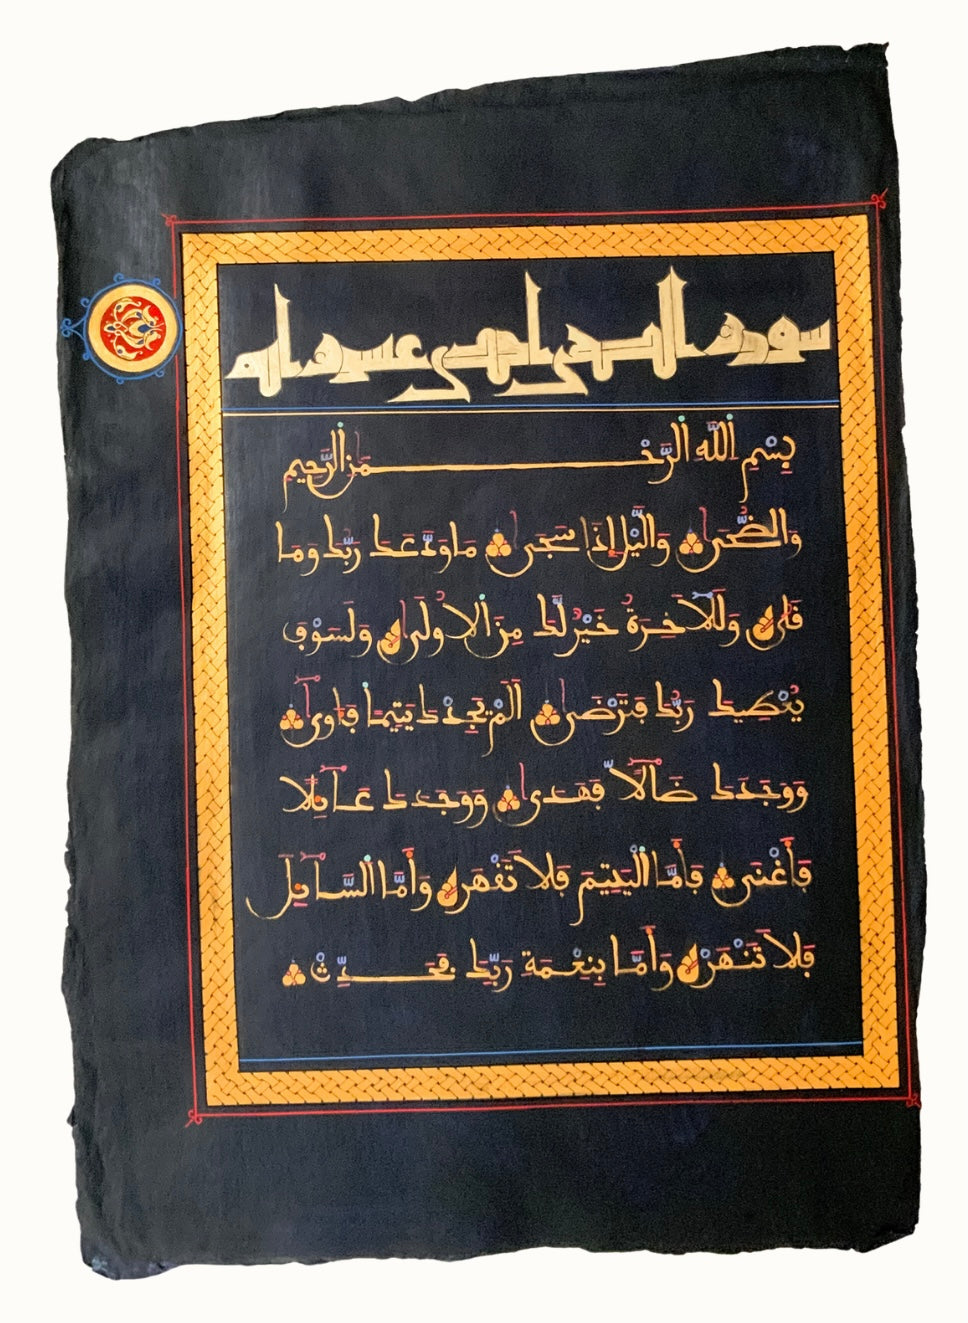 سورة الضحى احدى عشرة اية
بِسْمِ اللَّهِ الرَّحْمَٰنِ الرَّحِيمِ
وَالضُّحَىٰ وَالَّيْلِ إِذَا سَجَىٰ مَا وَدَّعَكَ رَبُّكَ وَمَا
قَلَىٰ وَلَلْآخِرَةُ خَيْرٌ لَّكَ مِنَ الْأُولَىٰ وَلَسَوْفَ
يُعْطِيكَ رَبُّكَ فَتَرْضَىٰ أَلَمْ يَجِدْكَ يَتِيمًا فَـَٔاوَىٰ
وَوَجَدَكَ ضَآلًّا فَهَدَىٰ وَوَجَدَكَ عَآئِلًا
فَأَغْنَىٰ فَأَمَّا الْيَتِيمَ فَلَا تَقْهَرْ وَأَمَّا السَّآئِلَ
فَلَا تَنْهَرْ وَأَمَّا بِنِعْمَةِ رَبِّكَ فَحَدِّثْ